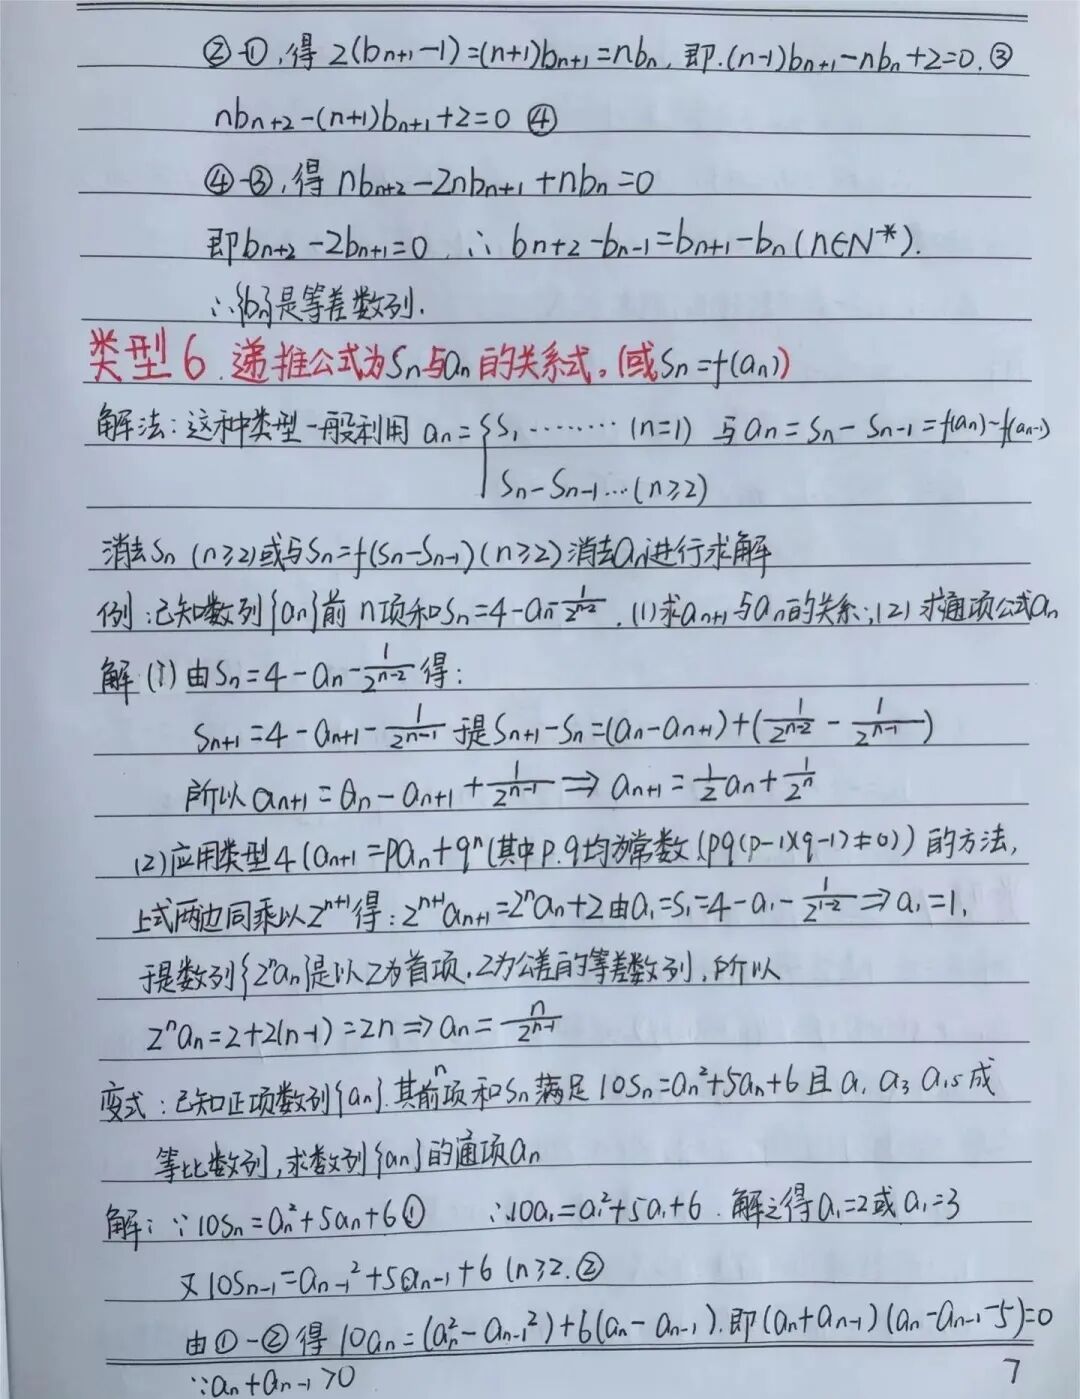 ②-①,得 2(bn+1-1)=(n+1)bn+1=nbn, 即.(n-1)bn+1-nbn+2=0.③
nbn+2-(n+1)bn+1+2=0 ④
④-③,得 nbn+2-2nbn+1+nbn=0
即bn+2-2bn+1=0 ∴ bn+2-bn-1=bn+1-bn(n∈N*).
∴{bn}是等差数列.
类型6.递推公式为Sn与an的关系式。(或Sn=f(an))
解法:这种类型一般利用 an={S1………(n=1) 与an=Sn-Sn-1=f(an)-f(an-1)
Sn-Sn-1…(n≥2)
消去Sn(n≥2)或与Sn=f(Sn-Sn-1)(n≥2)消去an进行求解
例:已知数列{an}前n项和Sn=4-an-1/2^(n-2).(1)求an+1与an的关系;(2)求通项公式an
解(1)由Sn=4-an-1/2^(n-2)得:
Sn+1=4-an+1-1/2^(n-1)于是Sn+1-Sn=(an-an+1)+(1/2^(n-2)-1/2^(n-1))
所以an+1=an-an+1+1/2^(n-1)⇒an+1=1/2an+1/2^n
(2)应用类型4(an+1=pan+q^n(其中p.q均为常数(pq(p-1)(q-1)≠0))的方法,
上式两边同乘以2^(n+1)得:2^(n+1)an+1=2^n an+2由a1=S1=4-a1-1/2^(1-2)⇒a1=1,
于是数列{2^n an}是以2为首项,2为公差的等差数列,所以
2^n an=2+2(n-1)=2n⇒an=n/2^(n-1)
变式:已知正项数列{an}.其前n项和Sn满足10Sn=an²+5an+6且a1 a3 a15成
等比数列,求数列{an}的通项an
解:∵10Sn=an²+5an+6① ∴10a1=a1²+5a1+6.解之得a1=2或a1=3
又10Sn-1=an-1²+5an-1+6(n≥2.②
由①-②得10an=(an²-an-1²)+6(an-an-1).即(an+an-1)(an-an-1-5)=0
∵an+an-1>0
7